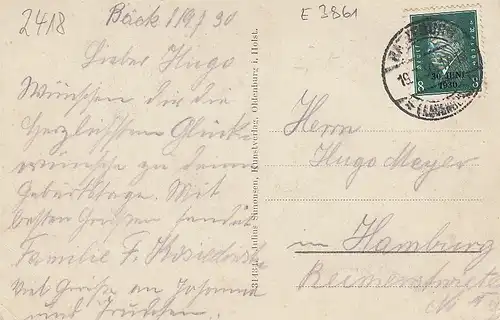 2418
Bäck 19.7 30
E 3861
Lieber Hugo
Wünschen dir die
herzlichsten Glück-
wünsche zu deinem
Geburtstage. Mit
besten Grüssen sendet
Familie F.
Viel Grüße an Johanna
und Trudchen.
31434. Julius Simonsen, Kunstverlag, Oldenburg i. Holst.
8
30. JUNI
1930
8
19.
(LAUENB
Herrn
Hugo Meyer
in Hamburg
No